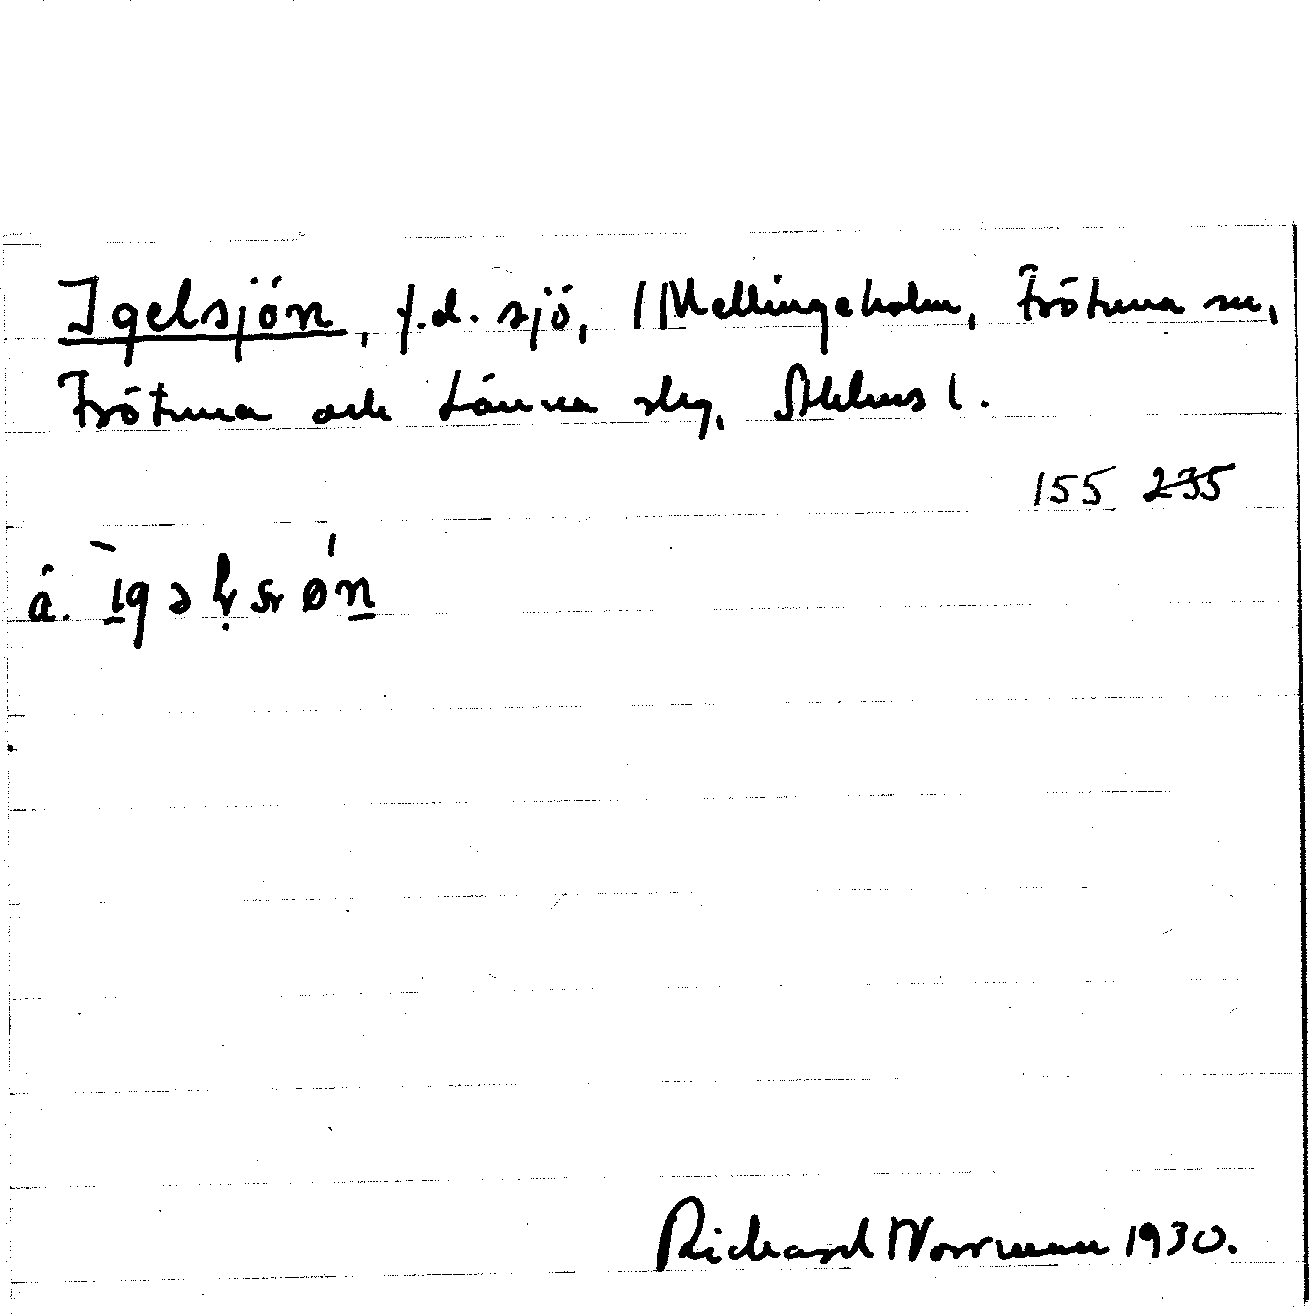 Igelsjön, f.d. sjö, / Mellingeholm, Frötuna sn,
Frötuna och Länna skg, Sthlms l.
155 235
a.
Richard Norrman 1930.